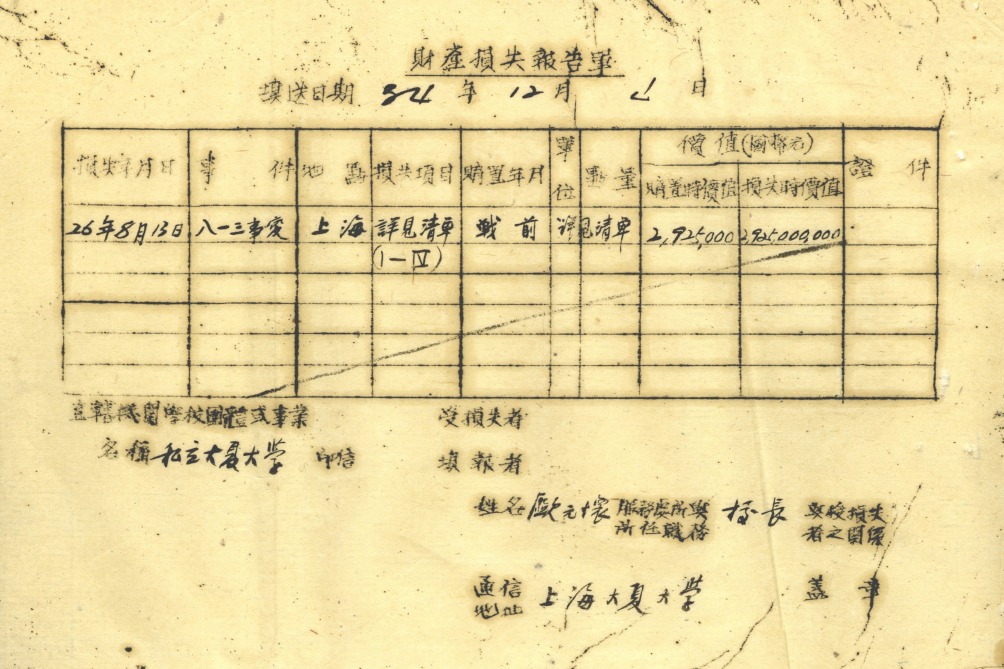 財產損失報告單
填送日期 34年12月 日
損失年月日 事件 地點 損失項目 購置年月 單位 數量 價值(國幣元) 證件
購置時價值 損失時價值
26年8月13日 八一三事變 上海 詳見清單 戰前 詳見清單 2,925,000 2,925,000,000
(I—IV)
直轄機關學校團體或事業 受損失者
名稱 私立大夏大学 印信 填報者
姓名 歐元懷 服務處所與 校長 與受損失
所任職務 者之關係
通信 上海大夏大学 蓋章
地址